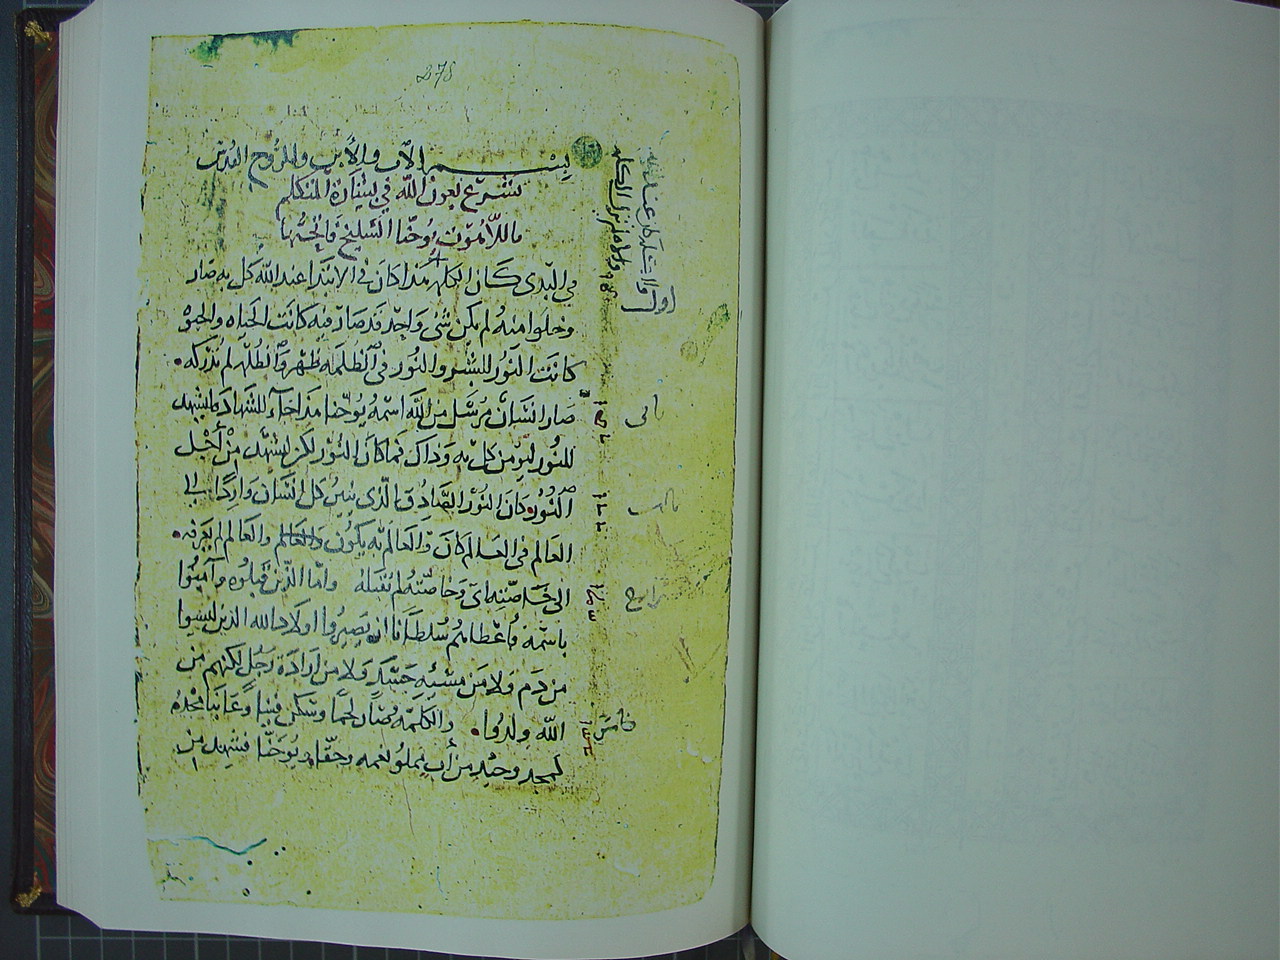 278
بِسْم الآب والإبن والروح القدس
نشرع بعون الله في بشارة المتكلم
باللاهوت يوحنا السليح فاتحتها
في البدى كان الكلمه هذا كان في الابتدا عند الله كل به صار
وخلوا منه لم يكن شى واحد قد صار فيه كانت الحياه والحيوه
كانت النور للبشر والنور في الظلمه ظهر والظلمه لم تدركه
صار انسان مرسل من الله اسمه يوحنا هذا جاء للشهاده ليشهد
للنور ليومن كل به وذاك فما كان النور لكن ليشهد من أجل
النور كان النور الصادق الذي ينير كل انسان واردا الى
العالم في العالم كان والعالم به يكون والعالم لم يعرفه
الى خاصته اتى وخاصته لم تقبله واما الذين قبلوه وآمنوا
باسمه فاعطاهم سلطانا ان يصيروا اولاد الله الذين ليسوا
من دم ولا من مشيه جسد ولا من ارادة رجل لكنهم من
الله ولدوا والكلمه صار لحما وسكن فينا وعاينا مجده
كمجد وحيد من أب مملو نعمه وحقا ويوحنا فشهد من
اول
ثاني
ثالث
رابع
خامس